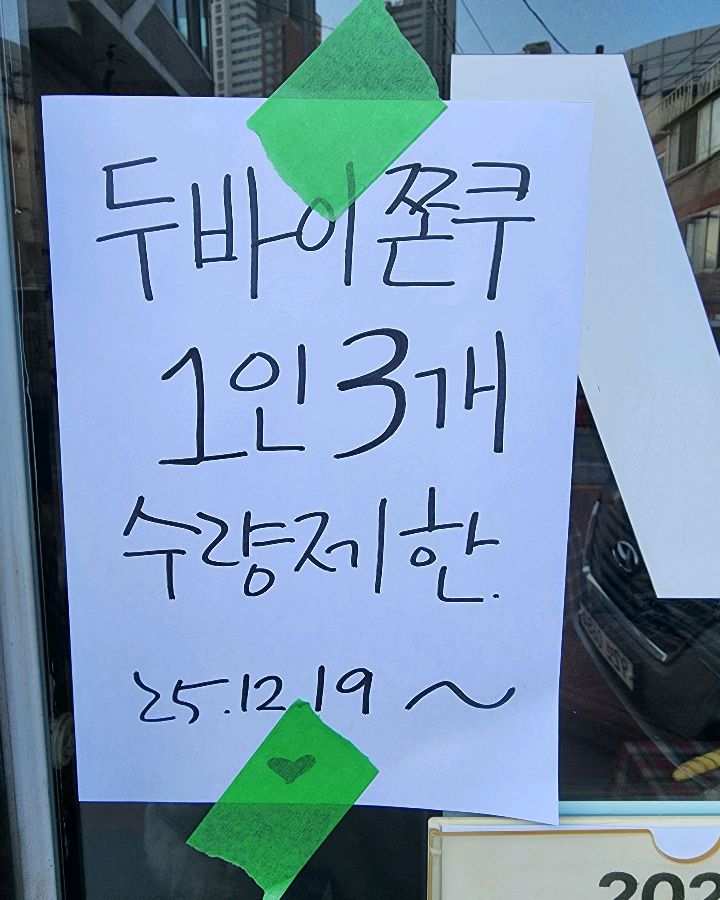 두바이쫀쿠
1인 3개
수량제한.
25.12.19 ~
♥
202